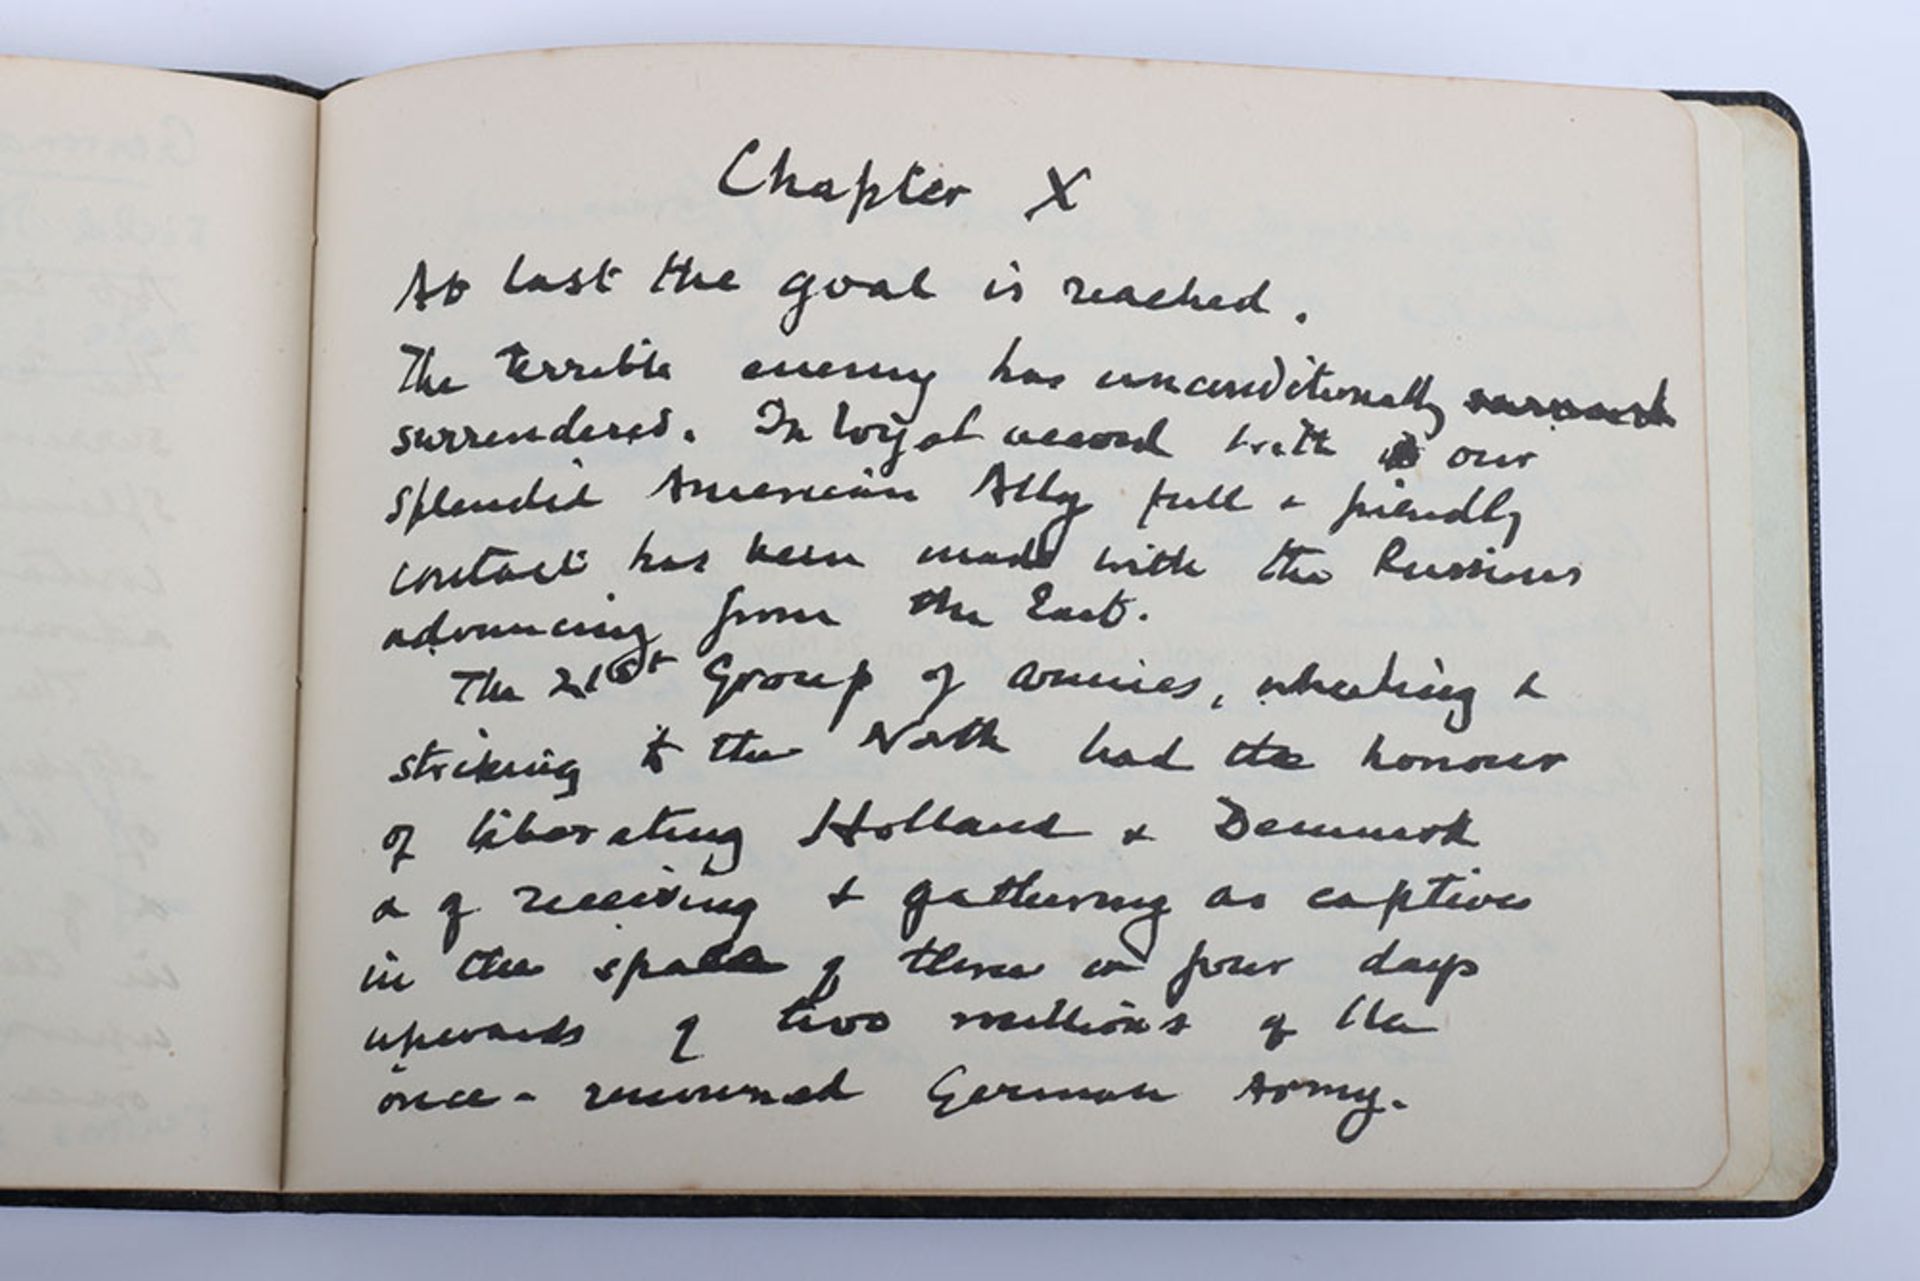 Chapter X
At last the goal is reached.
The terrible enemy has unconditionally
surrendered. In loyal accord with our
splendid American Ally full & friendly
contact has been made with the Russians
advancing from the East.
The 21st Group of armies, wheeling &
striking to the North had the honour
of liberating Holland & Denmark
& of receiving & gathering as captives
in the space of three or four days
upwards of two millions of the
once-renowned German Army.